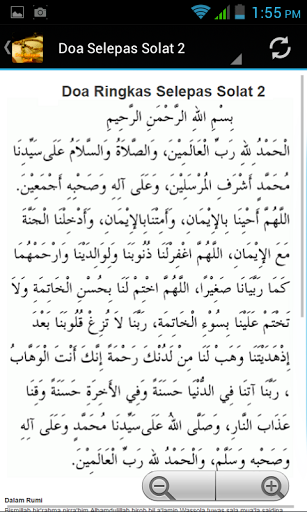 1:55 PM
Doa Selepas Solat 2
Doa Ringkas Selepas Solat 2
بِسْمِ اللهِ الرَّحْمَنِ الرَّحِيمِ
الْحَمْدُ لِلهِ رَبِّ الْعَالَمِيْنَ، وَالصَّلَاةُ وَالسَّلَامُ عَلَى سَيِّدِنَا
مُحَمَّدٍ أَشْرَفِ الْمُرْسَلِيْنَ، وَعَلَى آلِهِ وَصَحْبِهِ أَجْمَعِيْنَ.
اللَّهُمَّ أَحْيِنَا بِالإِيْمَانِ، وَأَمِتْنَا بِالإِيْمَانِ، وَأَدْخِلْنَا الْجَنَّةَ
مَعَ الإِيْمَانِ، اللَّهُمَّ اغْفِرْ لَنَا ذُنُوبَنَا وَلِوَالِدَيْنَا وَارْحَمْهُمَا
كَمَا رَبَّيَانَا صَغِيْرًا، اللَّهُمَّ اخْتِمْ لَنَا بِحُسْنِ الْخَاتِمَةِ وَلَا
تَخْتِمْ عَلَيْنَا بِسُوْءِ الْخَاتِمَةِ، رَبَّنَا لَا تُزِغْ قُلُوْبَنَا بَعْدَ
إِذْهَدَيْتَنَا وَهَبْ لَنَا مِنْ لَدُنْكَ رَحْمَةً إِنَّكَ أَنْتَ الْوَهَّابُ
، رَبَّنَا آتِنَا فِي الدُّنْيَا حَسَنَةً وَفِي الآخِرَةِ حَسَنَةً وَقِنَا
عَذَابَ النَّارِ، وَصَلَّى اللهُ عَلَى سَيِّدِنَا مُحَمَّدٍ وَعَلَى آلِهِ
وَصَحْبِهِ وَسَلَّمَ، وَالْحَمْدُ لِلهِ رَبِّ الْعَالَمِيْنَ.
Dalam Rumi